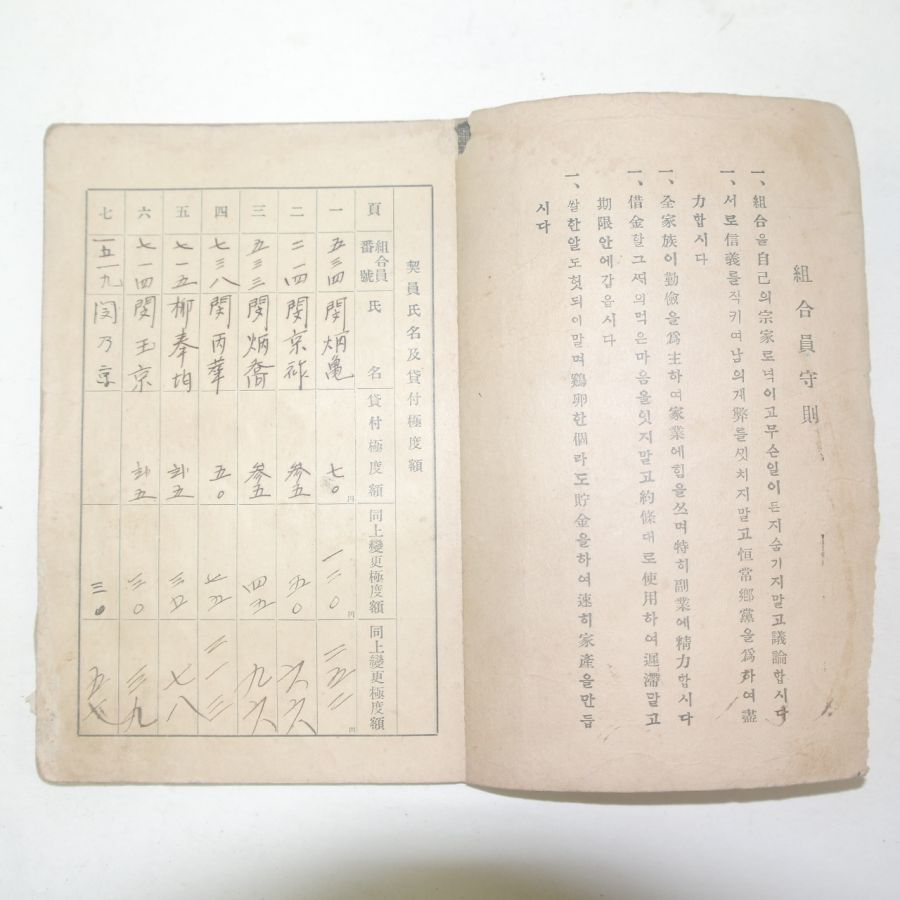 組合員守則
一、組合을自己의宗家로녁이고무슨일이든지숨기지말고議論합시다
一、서로信義를직키여남의게弊를씻치지말고恒常鄕黨을爲하여盡
力합시다
一、全家族이勤儉을爲主하여家業에힘을쓰며特히副業에精力합시다
一、借金할그때의먹은마음을잇지말고約條대로使用하여遲滯말고
期限안에갑읍시다
一、쌀한알도헛되이말며鷄卵한個라도貯金을하여速히家產을만듭
시다
契員氏名及貸付極度額
頁 組合員番號 氏名 貸付極度額 同上變更極度額 同上變更極度額
一 五三四 閔炳龜 七〇円 一二〇円 二五二円
二 二一四 閔京 参五 五〇 六六
三 五三三 閔炳喬 参五 四五 九六
四 七三八 閔丙華 五〇 七五 二一三
五 七一五 柳奉均 弍五 三五 七八
六 七一四 閔玉京 弍五 三〇 三九
七 一五一九 閔乃京 三〇 五七